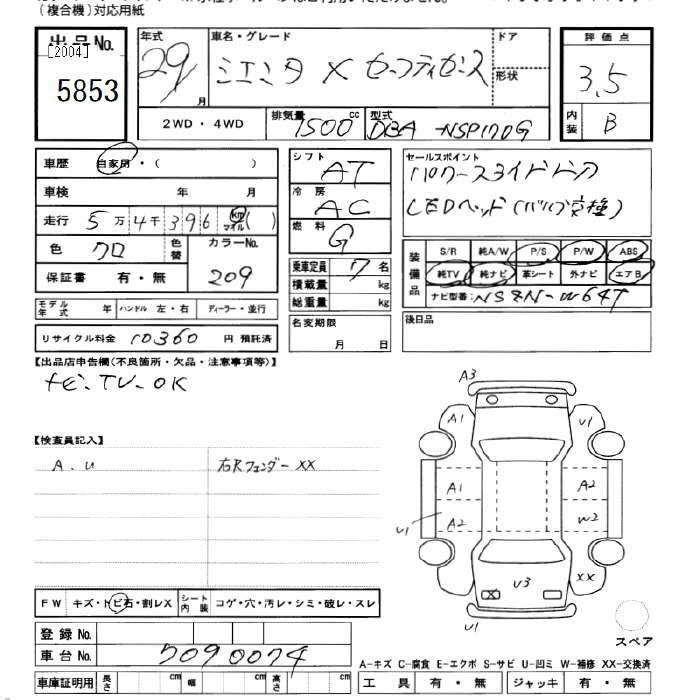 (複合機)対応用紙
出品No.
[2004]
5853
年式 29 月
車名・グレード ドア
シエンタ X セーフティセンス 形状
2WD・4WD 排気量 1500 cc 型式 DBA-NSP170G
評価点
3.5
内装 B
車歴 自家用・( )
車検 年 月
走行 5万4千396 km マイル ( )
色 クロ 色替 カラーNo. 209
保証書 有・無
モデル年式 年 ハンドル 左・右 ディーラー・並行
リサイクル料金 10360 円 預託済
シフト AT
冷房 AC
燃料 G
乗車定員 7 名
積載量 kg
総重量 kg
名変期限
月 日
セールスポイント
パワースライドドア
LEDヘッド(バルブ交種)
装備品 S/R 純A/W P/S P/W ABS
純TV 純ナビ 革シート 外ナビ エアB
ナビ型番: NSZN-W64T
後日品
【出品店申告欄(不良箇所・欠品・注意事項等)】
ナビ・TV-OK
【検査員記入】
A.U 右Rフェンダー XX
A3
A1 U1
A1 A2
U1 A2 W2
U3 XX
U1
スペア
FW キズ・トビ石・割レX シート内装 コゲ・穴・汚レ・シミ・破レ・スレ
登録No.
車台No. 7090074
車庫証明用 長さ cm 幅 cm 高さ cm
A-キズ C-腐食 E-エクボ S-サビ U-凹ミ W-補修 XX-交換済
工具 有・無 ジャッキ 有・無